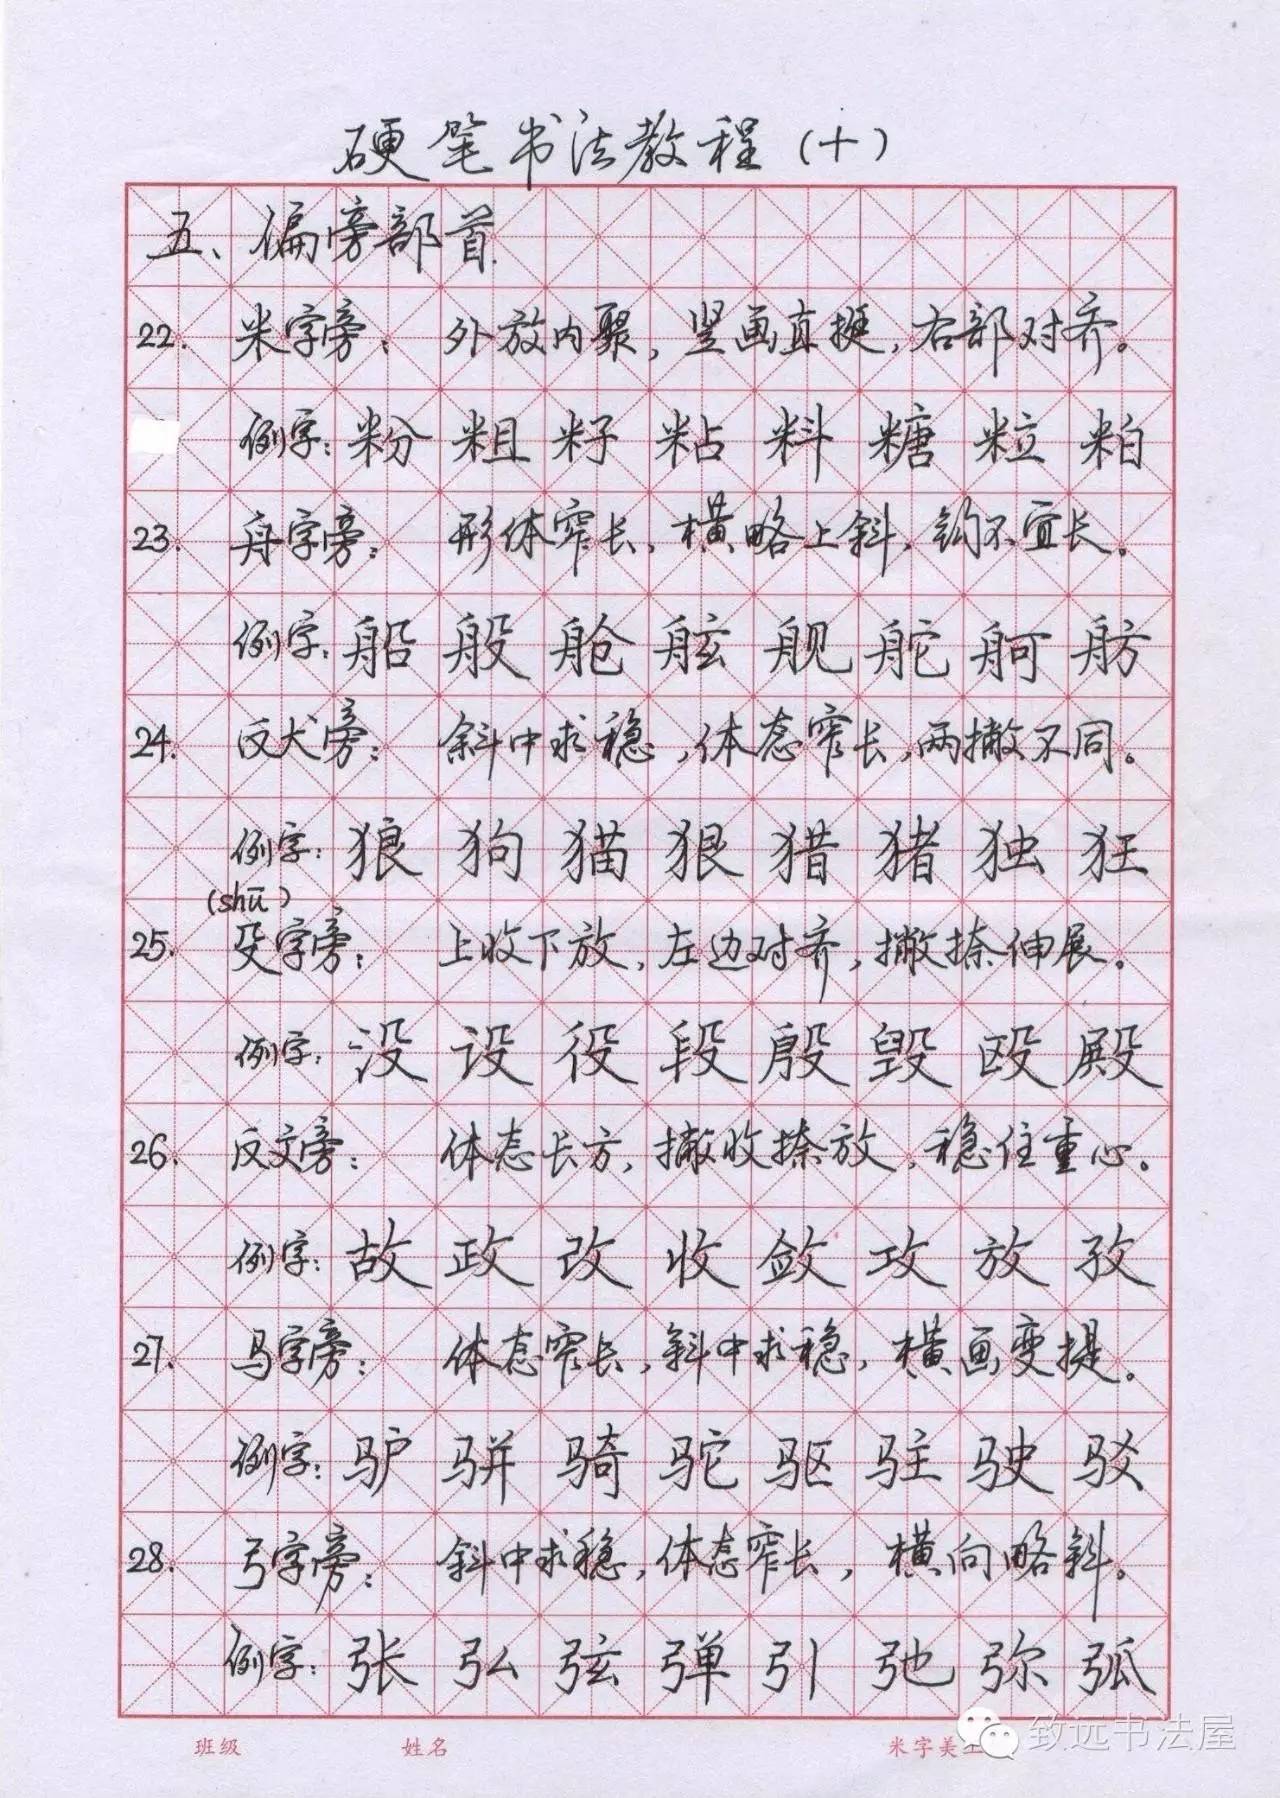 硬笔书法教程（十）
五、偏旁部首.
22. 米字旁： 外放内聚，竖画直挺，右部对齐。
例字：粉 粗 籽 粘 料 糖 粒 粕
23. 舟字旁： 形体窄长，横略上斜，钩不宜长。
例字：船 般 舱 舷 舰 舵 舸 舫
24. 反犬旁： 斜中求稳，体态窄长，两撇不同。
例字：狼 狗 猫 狠 猎 猪 独 狂
(shū)
25. 殳字旁： 上收下放，左边对齐，撇捺伸展。
例字：没 设 役 段 殷 毁 殴 殿
26. 反文旁： 体态长方，撇收捺放，稳住重心。
例字：故 政 改 收 敛 攻 放 孜
27. 马字旁： 体态窄长，斜中求稳，横画变提。
例字：驴 骈 骑 驼 驱 驻 驶 驳
28. 弓字旁： 斜中求稳，体态窄长，横向略斜。
例字：张 弘 弦 弹 引 弛 弥 弧
班级 姓名 米字美工
致远书法屋